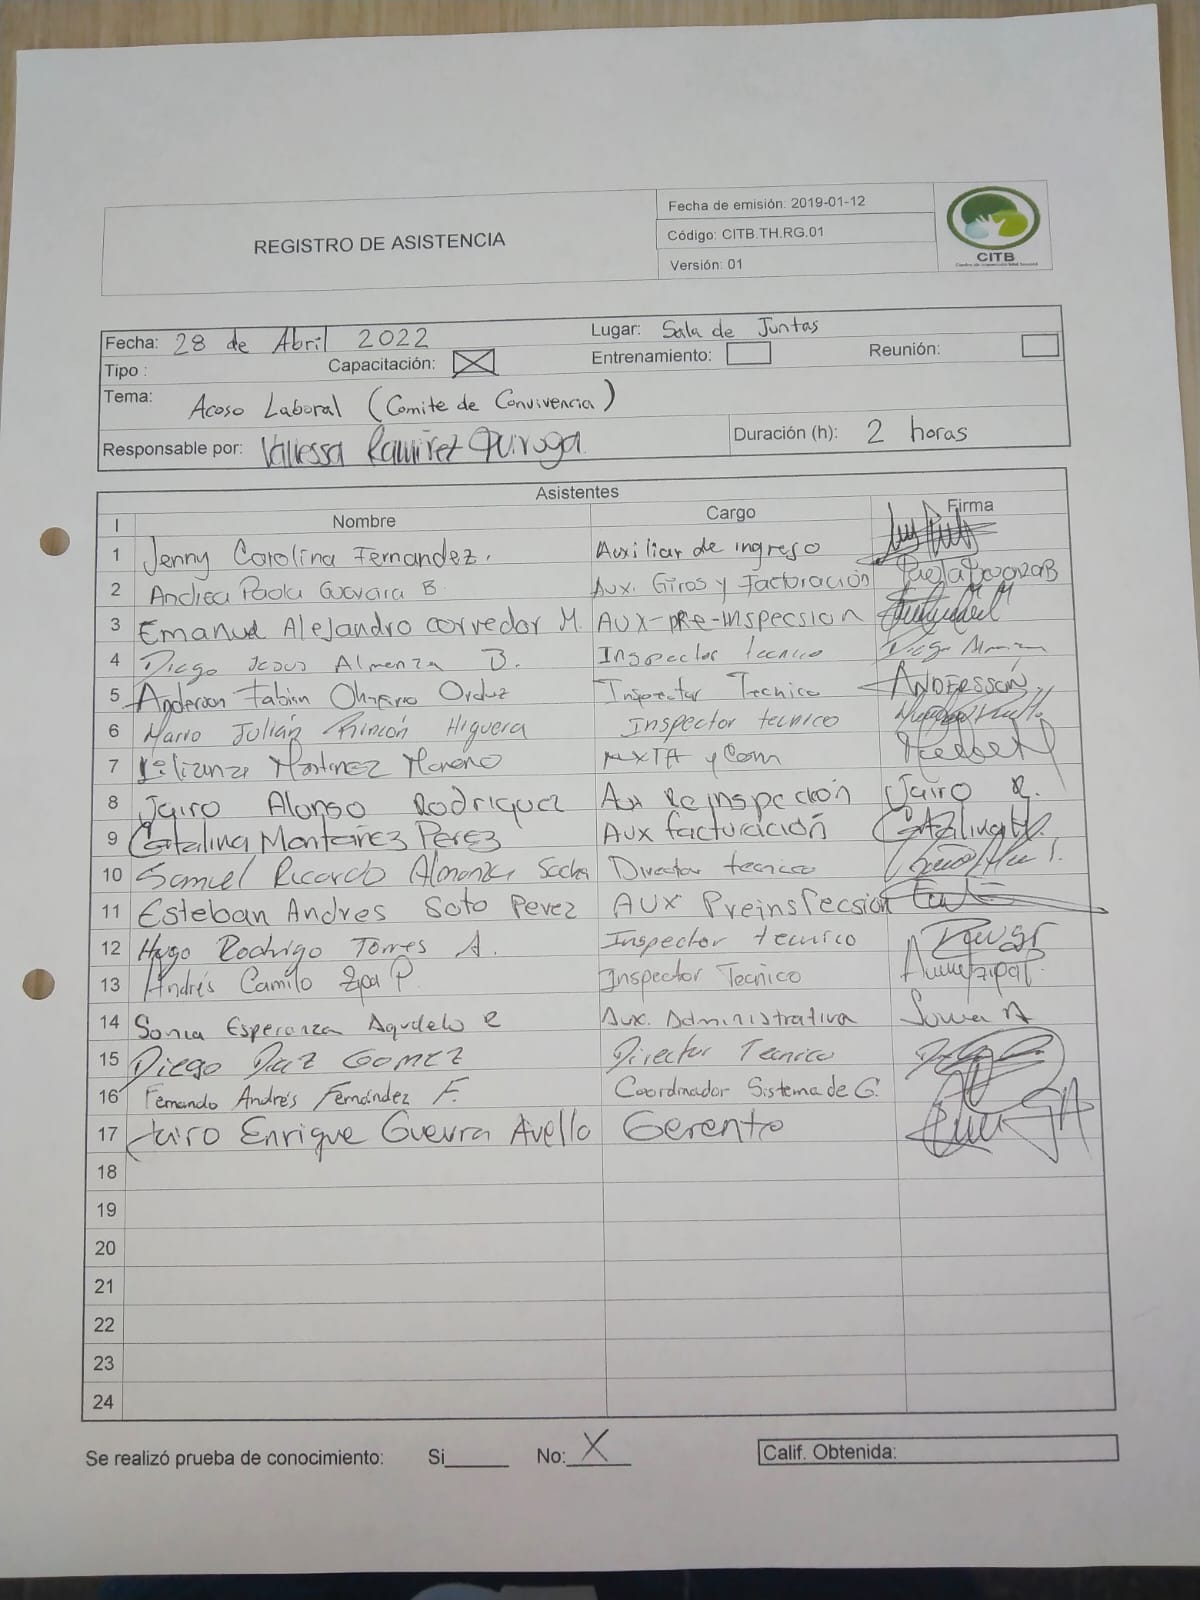 REGISTRO DE ASISTENCIA
Fecha de emisión: 2019-01-12
Código: CITB.TH.RG.01
Versión: 01
CITB
Fecha: 28 de Abril 2022 Lugar: Sala de Juntas
Tipo : Capacitación: X Entrenamiento: Reunión:
Tema: Acoso Laboral (Comite de Convivencia)
Responsable por: Vanessa Ramirez Quiroga Duración (h): 2 horas
Asistentes
I Nombre Cargo Firma
1 Jenny Carolina Fernandez. Auxiliar de ingreso
2 Andrea Paola Guevara B. Aux. Giros y Facturación
3 Emanuel Alejandro corredor M. AUX-pRe-inspecsion
4 Diego Jesus Almanza B. Inspector tecnico Diego
5 Anderson Fabian Orduz Inspector Tecnico ANDERSSON
6 Mario Julián Rincón Higuera Inspector tecnico
7 Martinez Moreno y Com
8 Jairo Alonso Rodriguez Aux Reinspección Jairo R.
9 Catalina Montañez Perez Aux facturación Catalina
10 Samuel Ricardo Almanza Director tecnico
11 Esteban Andres Soto Perez AUX Preinspecsion
12 Hugo Rodrigo Torres A. Inspector tecnico
13 Andrés Camilo Zipa P. Inspector Tecnico
14 Sonia Esperanza Agudelo R Aux. Administrativa Sonia A
15 Diego Diaz GOMEZ Director Tecnico
16 Fernando Andrés Fernández F. Coordinador Sistema de G.
17 Jairo Enrique Guevra Avello Gerente
18
19
20
21
22
23
24
Se realizó prueba de conocimiento: Si No: X Calif. Obtenida: